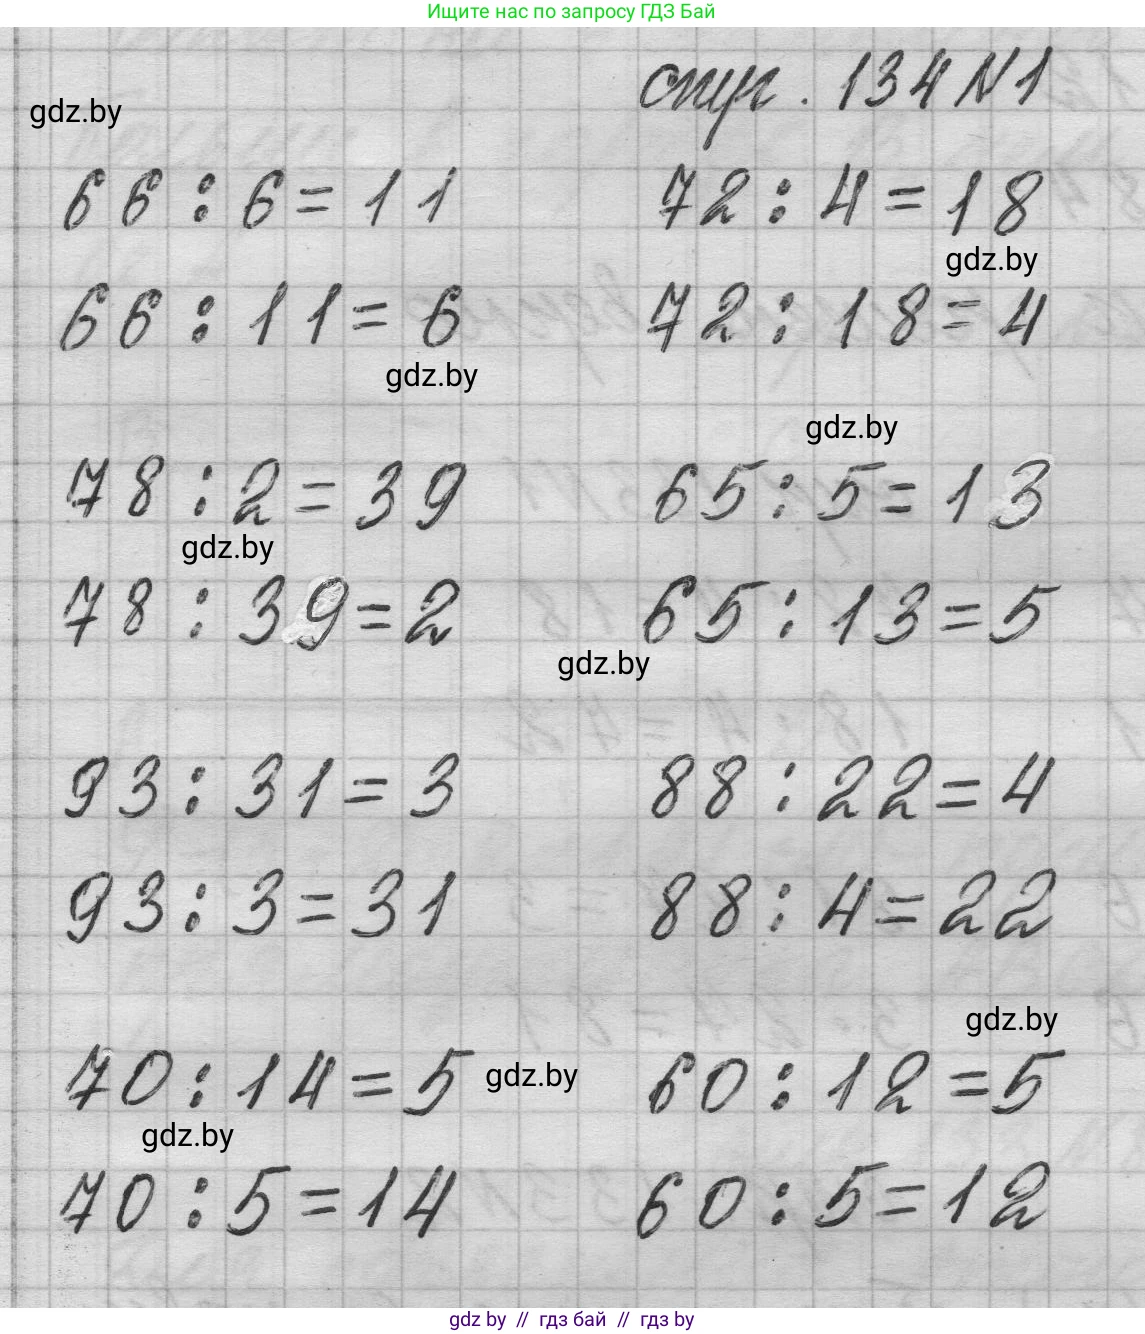 Ищите нас по запросу ГДЗ Бай
стр. 134 N1
gdz.by
66 : 6 = 11 72 : 4 = 18
gdz.by
66 : 11 = 6 72 : 18 = 4
gdz.by
gdz.by
78 : 2 = 39 65 : 5 = 13
gdz.by
78 : 39 = 2 65 : 13 = 5
gdz.by
93 : 31 = 3 88 : 22 = 4
93 : 3 = 31 88 : 4 = 22
gdz.by
70 : 14 = 5 gdz.by 60 : 12 = 5
gdz.by
70 : 5 = 14 60 : 5 = 12
gdz by // гдз бай // гдз by